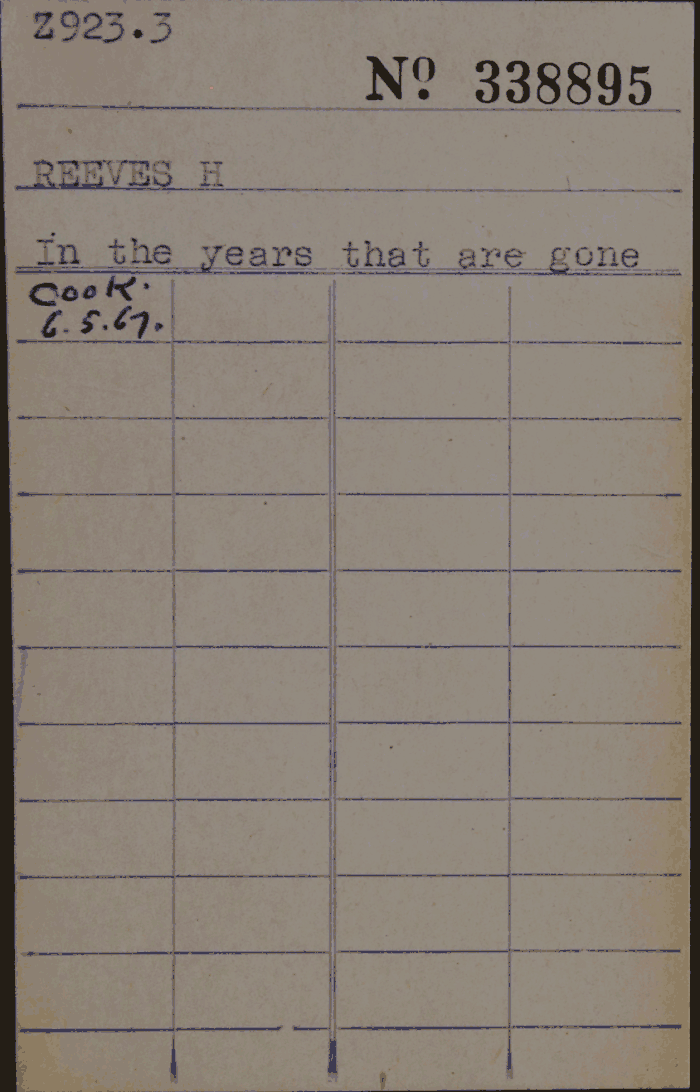 Z923.3
Nº 338895
REEVES H
In the years that are gone
Cook.
6.5.67.